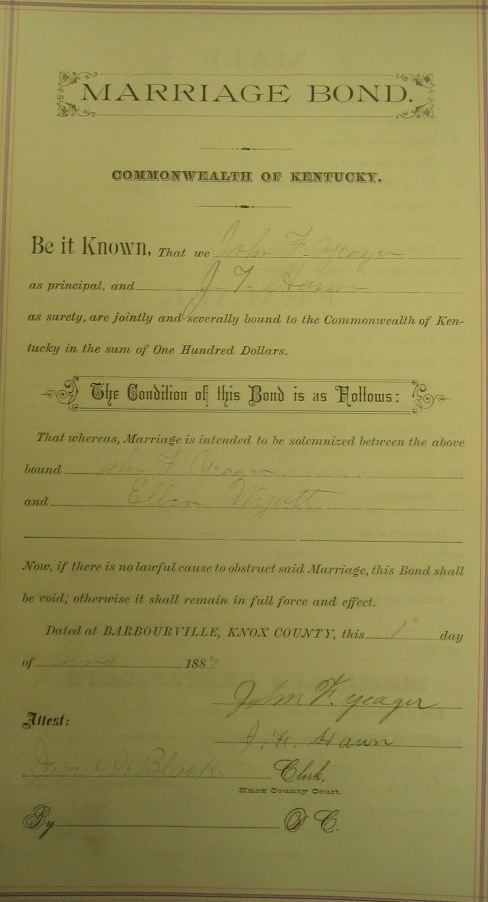 MARRIAGE BOND.
COMMONWEALTH OF KENTUCKY.
Be it Known, That we John F. Yeager
as principal, and J. F. Hawn
as surety, are jointly and severally bound to the Commonwealth of Ken-
tucky in the sum of One Hundred Dollars.
The Condition of this Bond is as Follows:
That whereas, Marriage is intended to be solemnized between the above
bound John F Yeager
and Ellen Wyatt
Now, if there is no lawful cause to obstruct said Marriage, this Bond shall
be void; otherwise it shall remain in full force and effect.
Dated at BARBOURVILLE, KNOX COUNTY, this 1" day
of 1887
John F. yeager
Attest:
Hawn
Black Clerk,
Knox County Court.
By D. C.